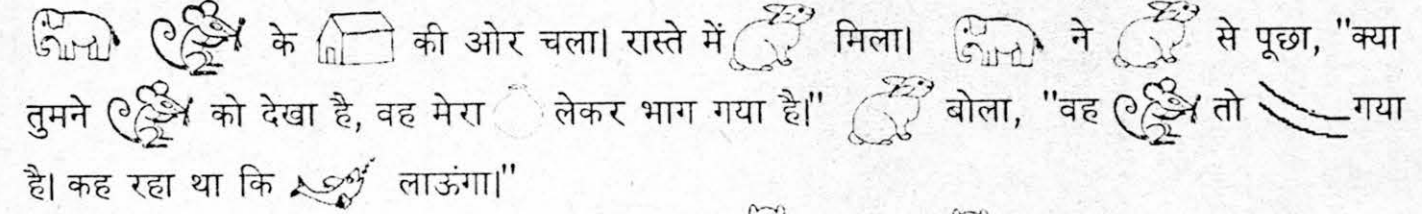 के की ओर चला। रास्ते में मिला। ने से पूछा, "क्या
तुमने को देखा है, वह मेरा लेकर भाग गया है।" बोला, "वह तो गया
है। कह रहा था कि लाऊंगा।"